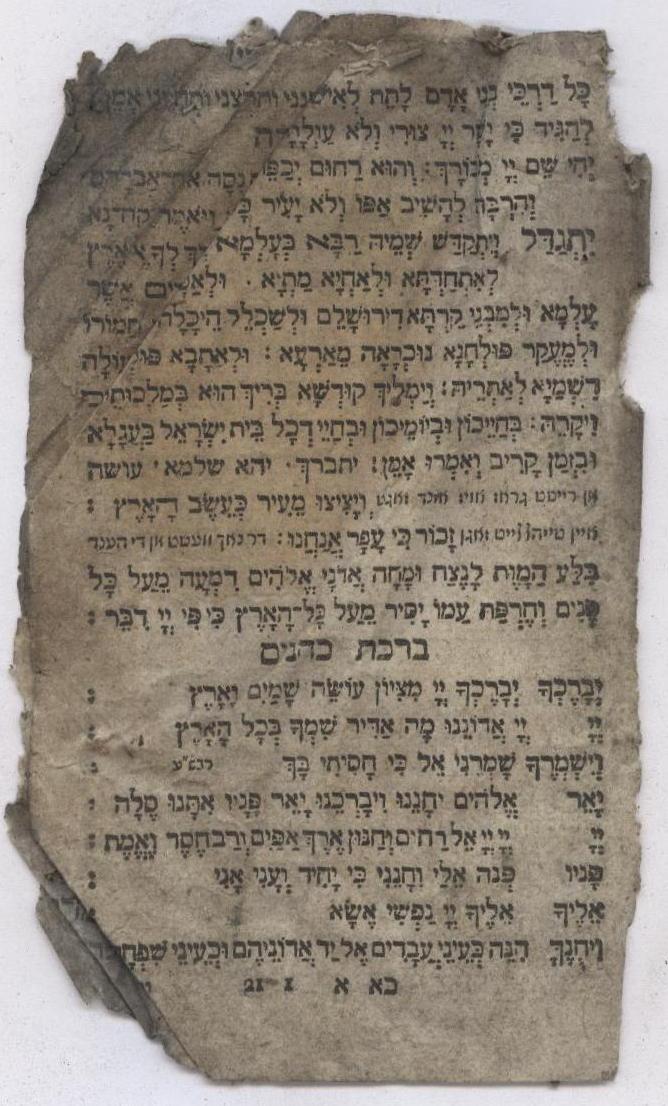 כָּל דַרְכֵּי בְנֵי אָדָם לָתֵת
לְהַגִּיד כִּי יָשָׁר יְיָ צוּרִי וְלֹא עַוְלָתָה
יְהִי שֵׁם יְיָ מְבוֹרָךְ: וְהוּא רַחוּם יְכַפֵּר
וְהִרְבָּה לְהָשִׁיב אַפּוֹ וְלֹא יָעִיר כָּל
יִתְגַדַּל וְיִתְקַדַּשׁ שְׁמֵיהּ רַבָּא בְּעָלְמָא
לְאִתְחַדְתָּא וּלְאַחְיָא מֵתַיָא .
עָלְמָא וּלְמִבְנֵי קַרְתָּא דִירוּשְׁלֵם וּלְשַׁכְלֵל הֵיכָלָה
וּלְמֶעְקַר פּוּלְחָנָא נוּכְרָאָה מֵאַרְעָא : וּלְאָתָבָא
דִשְׁמַיָא לְאַתְרֵיהּ: וְיַמְלִיךְ קוּדְשָׁא בְּרִיךְ הוּא בְּמַלְכוּתֵיהּ
וִיקָרֵהּ: בְּחַיֵיכוֹן וּבְיוֹמֵיכוֹן וּבְחַיֵי דְכָל בֵּית יִשְׂרָאֵל בַּעֲגָלָא
וּבִזְמַן קָרִיב וְאִמְרוּ אָמֵן: יתברך · יהא שלמא · עושה
אן רייסט גראז אויז אונד זאגט וְיָצִיצוּ מֵעִיר כְּעֵשֶׂב הָאָרֶץ :
זָכוֹר כִּי עָפָר אֲנָחְנוּ : דר נאך וועשט אן די הענד
בִּלַּע הַמָּוֶת לָנֶצַח וּמָחָה אֲדֹנָי אֱלֹהִים דִּמְעָה מֵעַל כָּל
פָּנִים וְחֶרְפַּת עַמּוֹ יָסִיר מֵעַל כָּל-הָאָרֶץ כִּי פִּי יְיָ דִבֵּר :
ברכת כהנים
יְבָרֶכְךָ יְבָרֶכְךָ יְיָ מִצִיוֹן עוֹשֵׂה שָׁמַיִם וָאָרֶץ :
יְיָ יְיָ אֲדוֹנֵנוּ מָה אַדִּיר שִׁמְךָ בְּכָל הָאָרֶץ :
וְיִשְׁמְרֶךָ שָׁמְרֵנִי אֵל כִּי חָסִיתִי בָךְ רבש״ע :
יָאֵר אֱלֹהִים יְחָנֵנוּ וִיבָרְכֵנוּ יָאֵר פָּנָיו אִתָּנוּ סֶלָה :
יְיָ יְיָ יְיָ אֵל רַחוּם וְחַנּוּן אֶרֶךְ אַפַּיִם וְרַב חֶסֶד וֶאֱמֶת :
פָּנָיו פְּנֵה אֵלַי וְחָנֵּנִי כִּי יָחִיד וְעָנִי אָנִי :
אֵלֶיךָ אֵלֶיךָ יְיָ נַפְשִׁי אֶשָּׂא :
וִיחֻנֶּךָּ הִנֵּה כְעֵינֵי עֲבָדִים אֶל יַד אֲדוֹנֵיהֶם וּכְעֵינֵי שִׁפְחָה
כא א 21